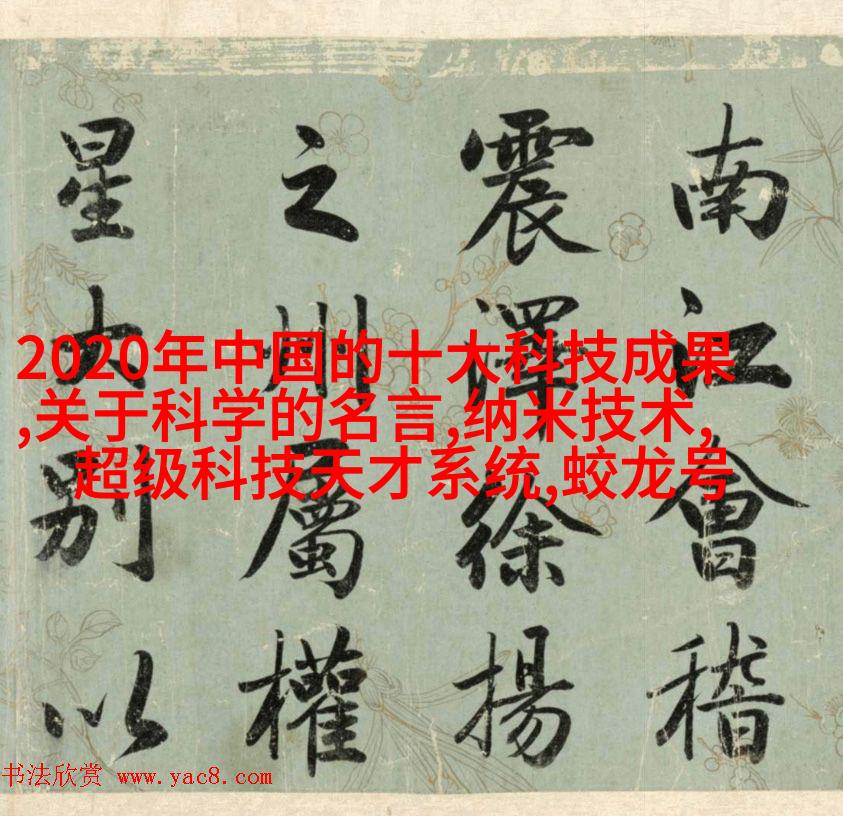 南江會稽
震澤徐揚
之州屬權
星大別以
2020年中国的十大科技成果
,关于科学的名言,纳米技术,
超级科技天才系统,蛟龙号
书法欣赏 www.yac8.com